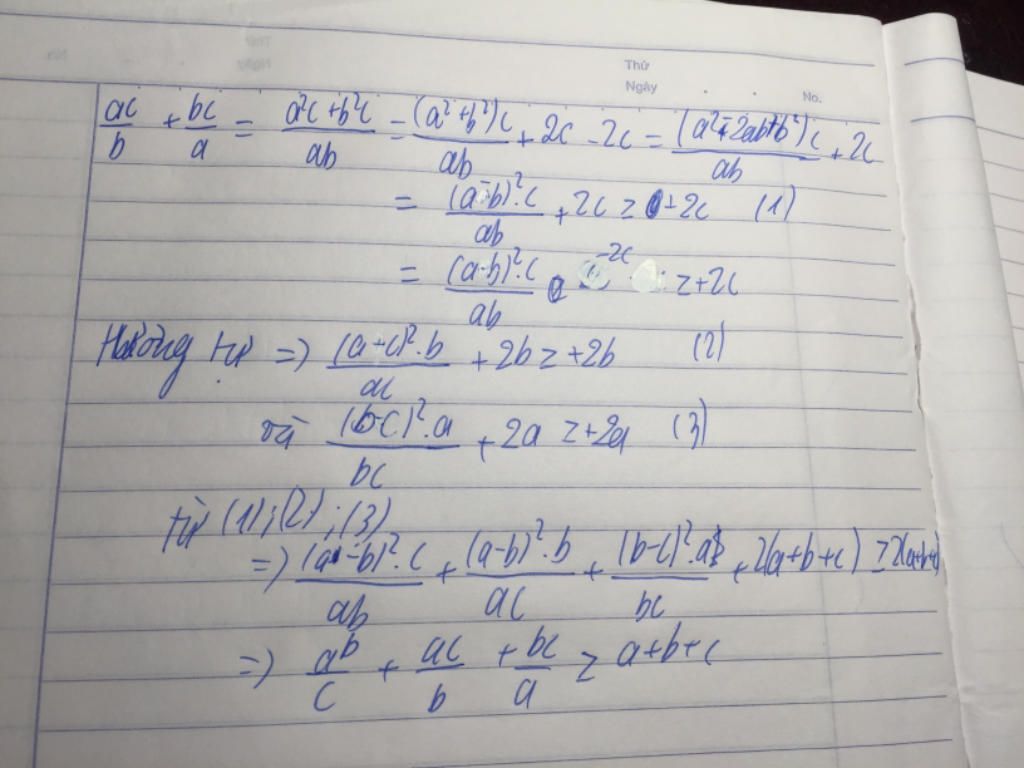 Thứ
Ngày
No.
ac/b + bc/a = (a²c+b²c)/ab = (a²+b²)c/ab + 2c - 2c = (a²-2ab+b²)c/ab + 2c
= (a-b)².c/ab + 2c ≥ 0+2c (1)
= (a-b)².c/ab -2c ≥ +2c
tự => (a-c)².b/ac + 2b ≥ +2b (2)
và (b-c)².a/bc + 2a ≥ +2a (3)
từ (1);(2);(3)
=> (a-b)².c/ab + (a-b)².b/ac + (b-c)².a/bc + 2(a+b+c) ≥ 2(a+b+c)
=> ab/c + ac/b + bc/a ≥ a+b+c